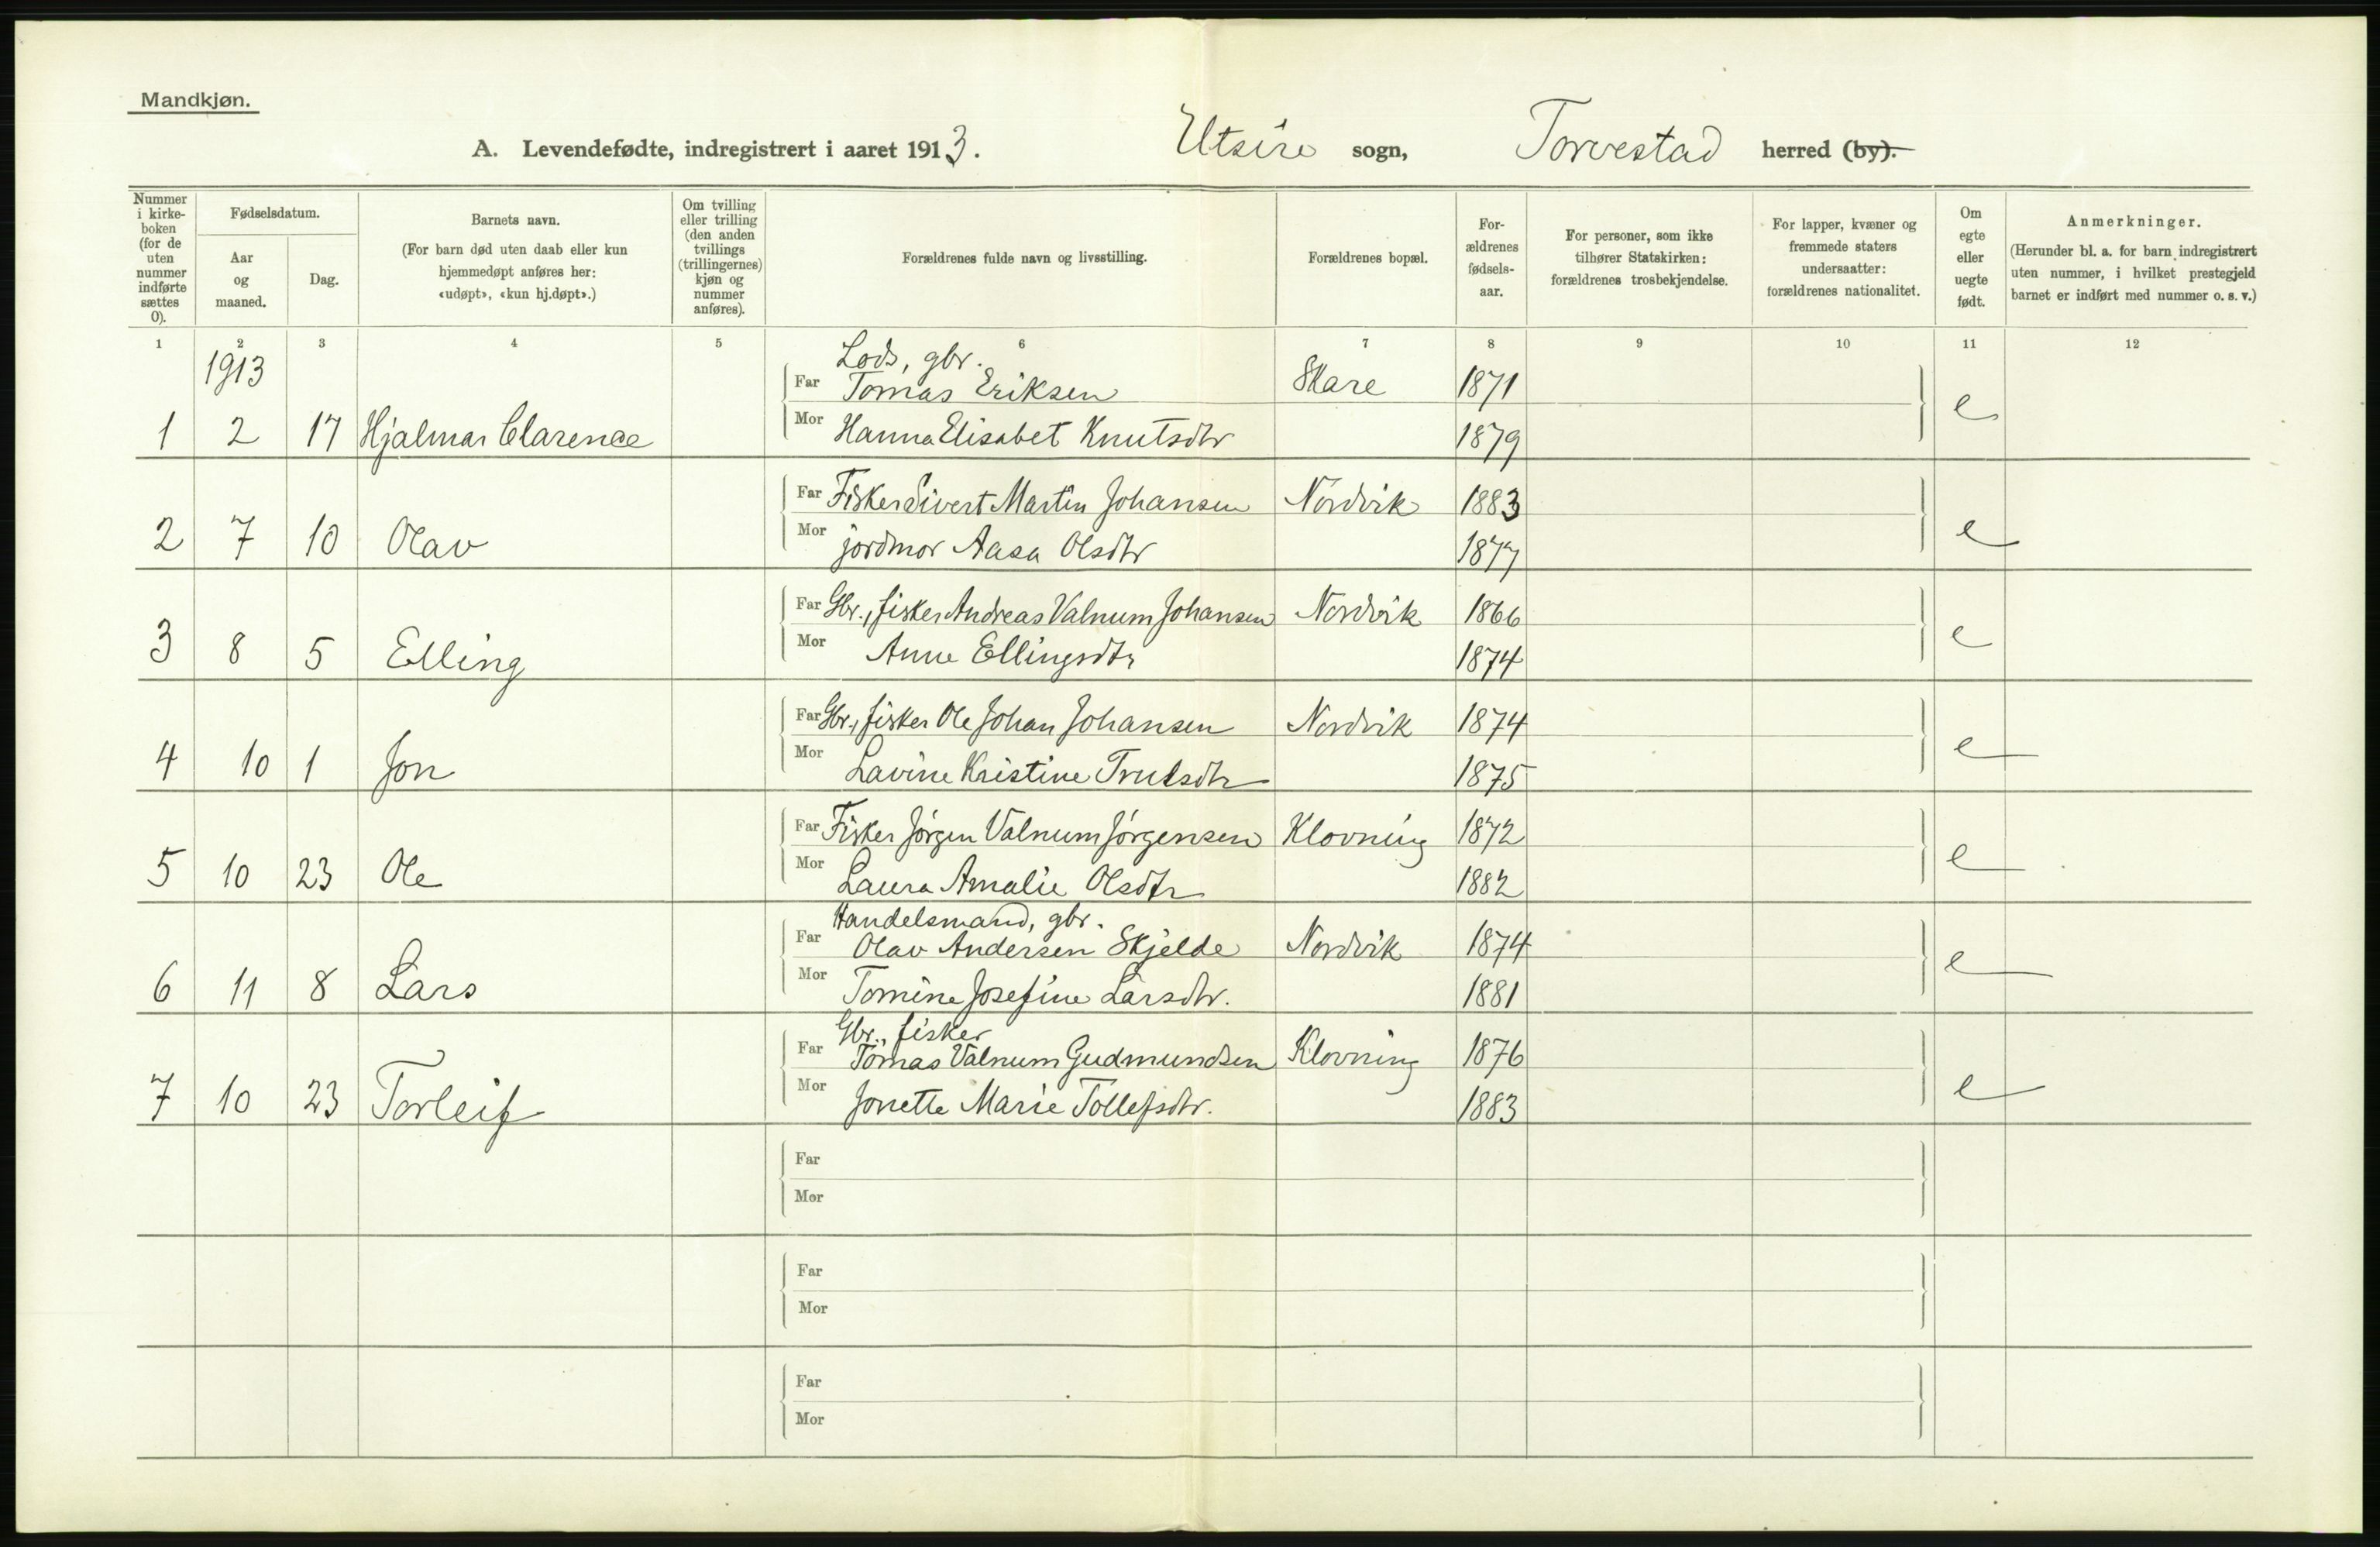 Mandkjøn.
A. Levendefødte, indregistrert i aaret 1913. Utsire sogn, Torvestad herred (by).
Nummer i kirke-boken (for de uten nummer indførte sættes 0).
Fødselsdatum.
Aar og maaned.
Dag.
Barnets navn.
(For barn død uten daab eller kun hjemmedøpt anføres her: «udøpt», «kun hj.døpt».)
Om tvilling eller trilling (den anden tvillings (trillingernes) kjøn og nummer anføres).
Forældrenes fulde navn og livsstilling.
Forældrenes bopæl.
For-ældrenes fødsels-aar.
For personer, som ikke tilhører Statskirken: forældrenes trosbekjendelse.
For lapper, kvæner og fremmede staters undersaatter: forældrenes nationalitet.
Om egte eller uegte født.
Anmerkninger.
(Herunder bl. a. for barn indregistrert uten nummer, i hvilket prestegjeld barnet er indført med nummer o. s. v.)
1 2 3 4 5 6 7 8 9 10 11 12
1913 Lods, gbr.
Far Tomas Eriksen Skare 1871
1 2 17 Hjalmar Clarence Mor Hanna Elisabet Knutsdtr 1879 e
Far Fisker Sivert Martin Johansen Nordvik 1883
2 7 10 Olav Mor jordmor Aasa Olsdtr 1877 e
Far Gbr., fisker Andreas Valnum Johansen Nordvik 1866
3 8 5 Elling Mor Anne Ellingsdtr 1874 e
Far Gbr., fisker Ole Johan Johansen Nordvik 1874
4 10 1 Jon Mor Lavine Kristine Trulsdtr 1875 e
Far Fisker Jørgen Valnum Jørgensen Klovning 1872
5 10 23 Ole Mor Laura Amalie Olsdtr 1882 e
Handelsmand, gbr.
Far Olav Andersen Skjelde Nordvik 1874
6 11 8 Lars Mor Tomine Josefine Larsdtr. 1881 e
Gbr., fisker
Far Tomas Valnum Gudmundsen Klovning 1876
7 10 23 Torleif Mor Jonette Marie Tollefsdtr. 1883 e
Far
Mor
Far
Mor
Far
Mor